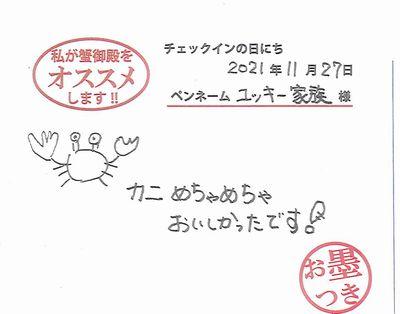 私が蟹御殿を
オススメ
します!!
チェックインの日にち
2021年11月27日
ペンネーム ユッキー家族 様
カニ めちゃめちゃ
おいしかったです!
お墨
つき